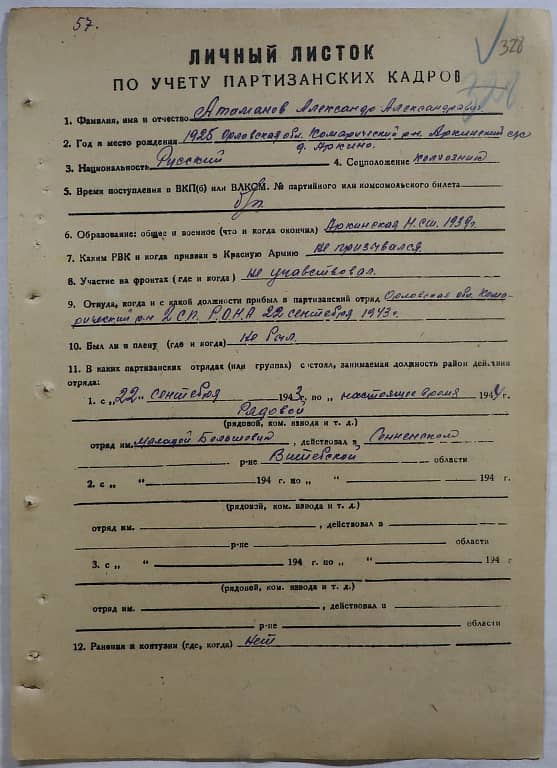 57.
328
328
ЛИЧНЫЙ ЛИСТОК
ПО УЧЕТУ ПАРТИЗАНСКИХ КАДРОВ
1. Фамилия, имя и отчество Атаманов Александр Александрович
2. Год и место рождения 1925 Орловская обл. Комарический р-н Аркинский с/с
д. Аркино.
3. Национальность Русский 4. Соцположение колхозник
5. Время поступления в ВКП(б) или ВЛКСМ. № партийного или комсомольского билета
б/п.
6. Образование: общее и военное (что и когда окончил) Аркинская Н.С.Ш. 1939 г.
7. Каким РВК и когда призван в Красную Армию не призывался.
8. Участие на фронтах (где и когда) не учавствовал.
9. Откуда, когда и с какой должности прибыл в партизанский отряд Орловская обл. Кома-
рический р-н 2 СП. Р.О.Н.А 22 сентября 1943 г.
10. Был ли в плену (где и когда) не был.
11. В каких партизанских отрядах (или группах) состоял, занимаемая должность район действия
отряда:
1. с „22" сентября 1943 г. по „ настоящее время 1944 г.
Радовой
(рядовой, ком. взвода и т. д.)
отряд им. Молодой Большевик, действовал в Сенненском
р-не Витебской области
2. с „ " 194 г. по „ " 194 г.
(рядовой, ком. взвода и т. д.)
отряд им. , действовал в
р-не области
3. с „ " 194 г. по „ " 194 г
(рядовой, ком. взвода и т. д.)
отряд им. , действовал в
р-не области
12. Ранения и контузии (где, когда) нет